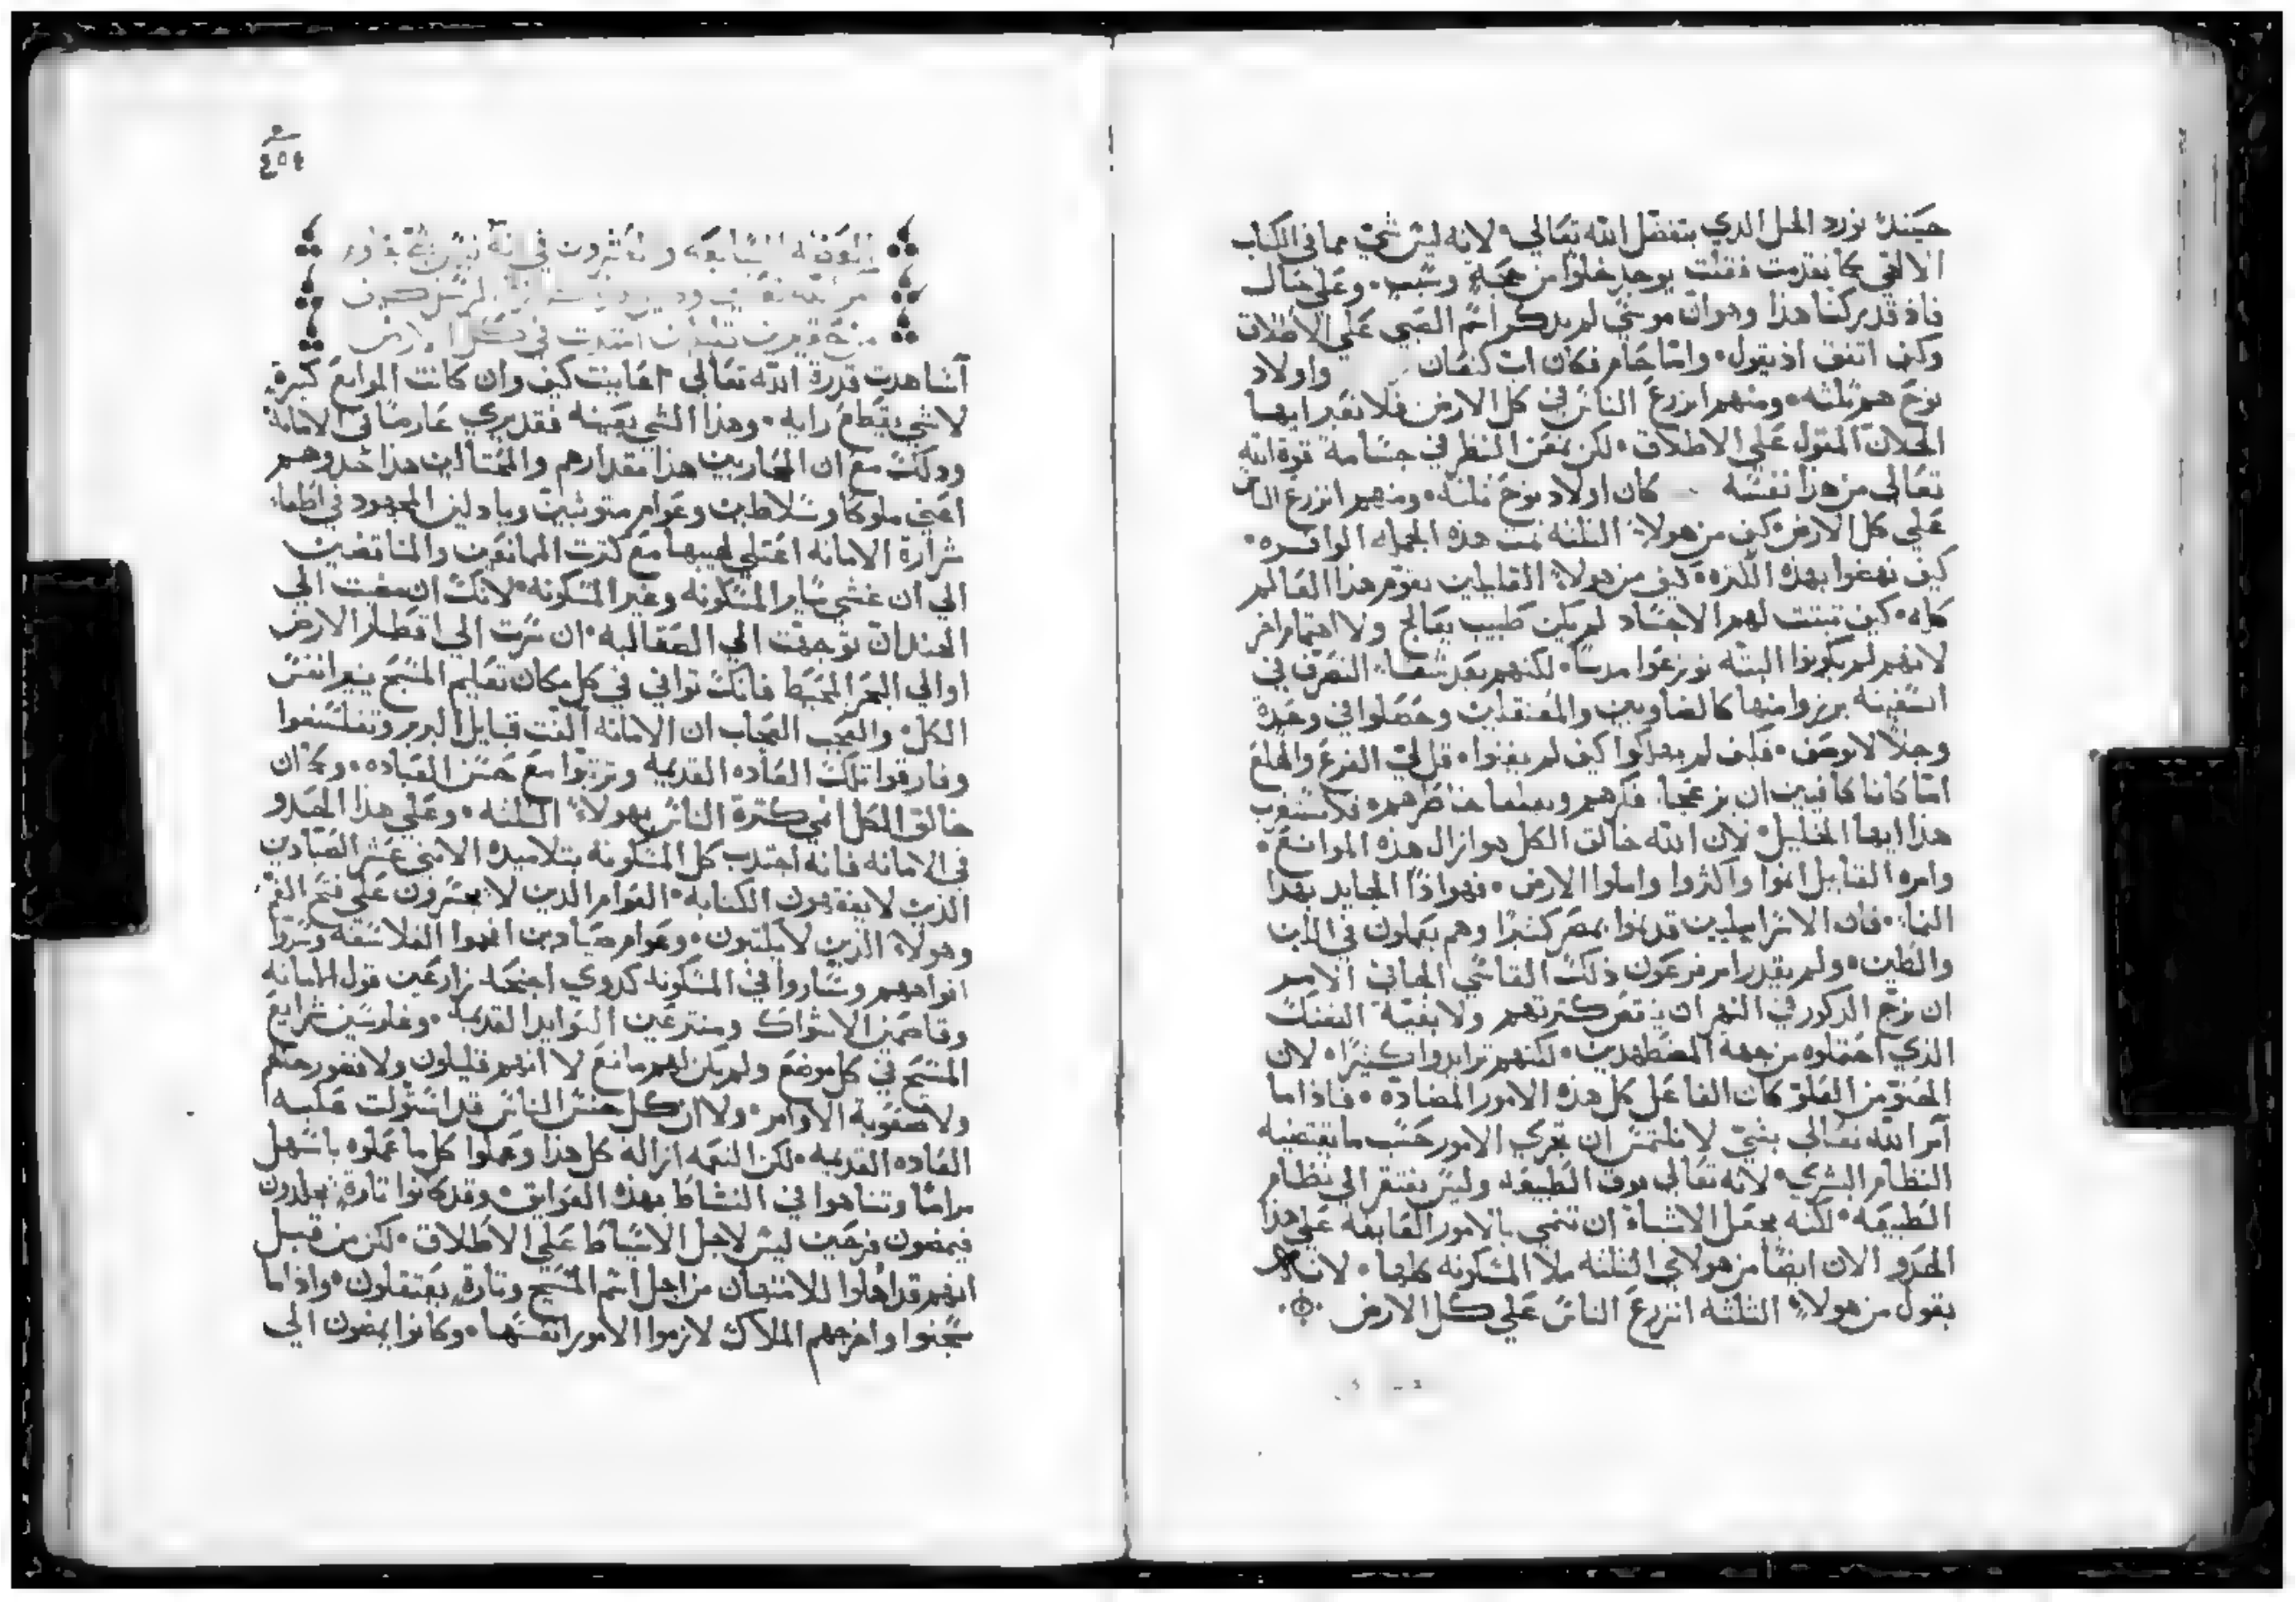 حينئذ نورد الحل الدي بتفضل الله تعالي • لانه ليس شي مما في الكتاب
الالهي كما تقدمت فقلت يوجد خلوا من حجة وسبب • وعلي حال
فاذ قد تركنا هذا وهو ان موسي لم يدكر اسم الصبي علي الاطلاق
وكيف اتفق اذ يقول • واما حام فكان اب كنعان واولاد
نوح هم ثلثه • ومنهم انزرع الناس في كل الارض فلا نعبر ايها
الخلان القول علي الاطلاق • لكن نمعن النظر في جسامة قوة الله
تعالي من هذا نفسه كان اولاد نوح ثلثه • ومنهم انزرع الناس
علي كل الارض كيف من هولاء الثلثه نمت هذه الجمله الوافره •
كيف بهذه الكثره كيف من هولاء القليلين يقوم هذا العالم
كله • كيف تبتت لهم الاجساد لم يكن طبيب يعالج ولا اهتمام اخر
لانهم لم يكونوا البته توزعوا مدنا • لكنهم بعد التصرف في
السفينه برزوا منها كالضاويين والمعتقلين وحصلوا في وحدة
وخلا لا يوصف • فكيف لم يهلكوا كيف لم يفنوا • قل لي الفزع والهلع
اما كانا كافيين ان يزعجا فكرهم خاطرهم • فلا تستغرب
هذا ايها الخليل • لان الله خالق الكل هو ازال هذه الموانع •
وامره القايل انموا واكثروا واملوا الارض • فهو اذا الجايد بهذا
النما • فان الاسراييليين قد نموا بمصر كثيرا وهم يعملون في اللبن
والطين • ولم يقدر امر فرعون ذلك القاسي الجافي الامر
ان تزج الدكور في النهر ان ينقص كثرتهم ولا بقية الضنك
الذي احتملوه من جهة المضطهدين • لكنهم تزايدوا كثيرا • لان
المعني من العلو كان الفاعل كل هذه الامور المضادة • فاذا ما
امر الله تعالي بشي لا نلتمس ان تجري الامور حسب ما يقتضيه
النظام البشري • لانه تعالي فوق الطبيعه وليس يفتقر الي نظام
الطبيعه • لكنه يجعل الاشياء ان تنمي بالامور العايقه علي هذا
الحدو الان ايضا من هولاي الثلثه ملا المسكونه كلها • لانه
يقول من هولاء الثلثه انزرع الناس علي كل الارض
٤٥٤
العظه السابعه والعشرون في انه ليس شي
اشاهدت قدرة الله تعالي اعاينت كيف وان كانت الموانع كثيرة
لا شي يقطع رايه • وهذا الشي بعينه فقد يري عارضا في الامانة
ودلك مع ان المحاربين هذا مقدارهم والمحتالين هذا حدوهم
اعني ملوكا وسلاطين وعوام متوثبين وبادلين المجهود في اطفاء
شرارة الامانه اعتلي لهيبها مع كثرت الممانعين والمناقضين
الي ان غشي ساير المسكونه وغير المسكونه • لانك ان مضت الي
الهند ان توجهت الي الصقالبه • ان سرت الي اقطار الارض
او الي البحر المحيط فانك توافي في كل مكان تعليم المسيح ينير انفس
الكل • والعجب العجاب ان الامانه الفت قبايل البربر وتفلسفوا
وفارقوا تلك العاده القديمه ورتبوا مع حسن العباده • وكما ان
خالق الكل انمي كثرة الناس بهولاء الثلثه • وعلي هذا الحدو
في الامانه فانه اجتدب كل المسكونه بتلاميده الاثني عشر الصيادين
الذين لا يفقهون الكتابه • العوام الذين لا يجسرون علي فتح الفم
وهولاء الذين لا يكتبون • وعوام صيادين افحموا الفلاسفه وسدوا
افواههم وساروا في المسكونه كدوي اجنحة زارعين قول الامانه
وقاطعين الاشواك ومنتزعين العوايد القديمه • وغارسين شرايع
المسيح في كل موضع ولم يكن لهم مانع لا انهم قليلون ولا نفور
ولا صعوبة الاوامر • ولا ان كل جنس الناس قد استولت عليه
العاده القديمه • لكن النعمه ازالة كل هذا وعملوا كل ما عملوه باسهل
مراما وتناهوا في النشاط بهذه العوايق • وقد كانوا تارة يجلدون
فيمضون فرحين ليس لاجل الاسياط علي الاطلاق • لكن من قبل
انهم قد اهلوا للامتهان من اجل اسم المسيح وتارة يعتقلون • واذا ما
سجنوا واخرجهم الملاك لازموا الامور انفسها • وكانوا يمضون الي